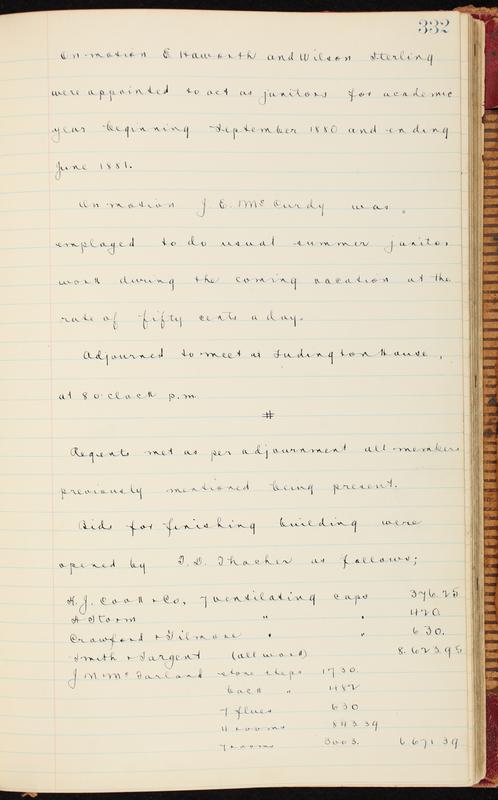 332
On motion E Haworth and Wilson Sterling
were appointed to act as janitors for academic
year beginning September 1880 and ending
June 1881.
On motion J E. McCurdy was
employed to do usual summer janitor
work during the coming vacation at the
rate of fifty cents a day.
Adjourned to meet at Ludington House,
at 8 o'clock p.m.
#
Regents met as per adjournment all members
previously mentioned being present.
Bids for finishing building were
opened by T. D. Thacher as follows;
H. J. Cook & Co, 7 ventilating caps 376.25
A Storm " " 420.
Crawford & Filmore " " 630.
Smith & Sargent (all work) 8.623.95
J M McFarland stone steps 1730.
back " 482
7 flues 630
11 rooms 843.39
7 rooms 3003. 6.671 39